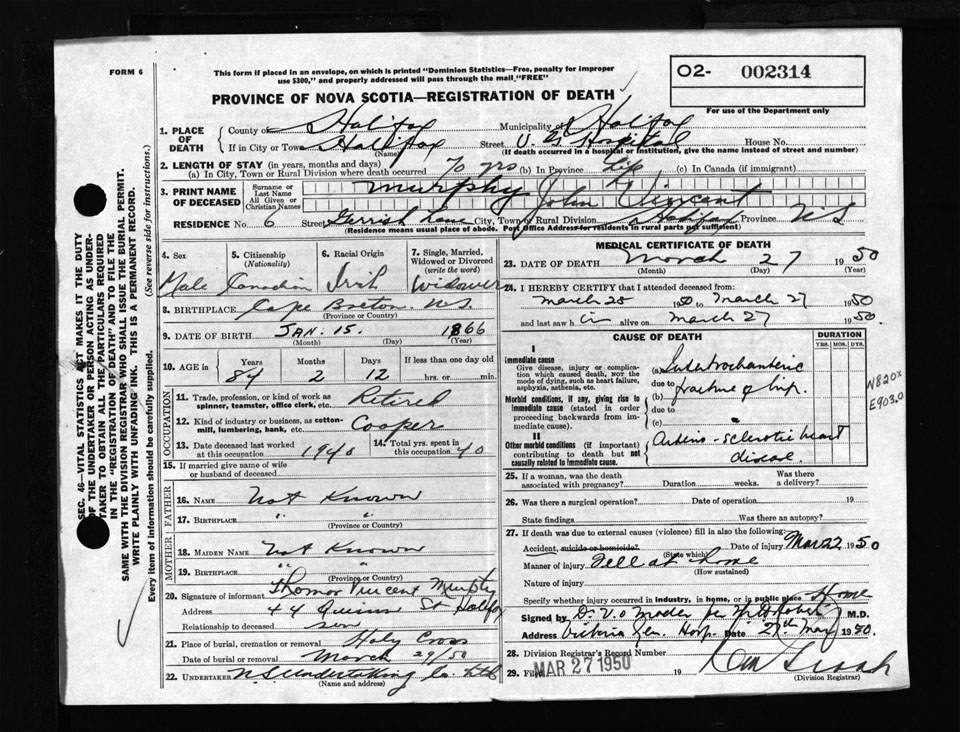 FORM 6
This form if placed in an envelope, on which is printed "Dominion Statistics—Free, penalty for improper
use $300," and properly addressed will pass through the mail "FREE"
O2- 002314
For use of the Department only
PROVINCE OF NOVA SCOTIA—REGISTRATION OF DEATH
SEC. 46—VITAL STATISTICS ACT MAKES IT THE DUTY
OF THE UNDERTAKER OR PERSON ACTING AS UNDER-
TAKER TO OBTAIN ALL THE PARTICULARS REQUIRED
IN THE "REGISTRATION OF DEATH" AND TO FILE THE
SAME WITH THE DIVISION REGISTRAR WHO SHALL ISSUE THE BURIAL PERMIT.
WRITE PLAINLY WITH UNFADING INK. THIS IS A PERMANENT RECORD.
Every item of information should be carefully supplied. (See reverse side for instructions.)
1. PLACE OF DEATH County of Halifax Municipality of Halifax
If in City or Town Halifax Street V. G. Hospital House No.
(Name) (If death occurred in a hospital or institution, give the name instead of street and number)
2. LENGTH OF STAY (in years, months and days)
(a) In City, Town or Rural Division where death occurred 70 yrs (b) In Province Life (c) In Canada (if immigrant)
3. PRINT NAME OF DECEASED Surname or Last Name Murphy
All Given or Christian Names John Vincent
RESIDENCE No. 6 Street Gerrish Lane City, Town or Rural Division Halifax Province N S
(Residence means usual place of abode. Post Office Address for residents in rural parts not sufficient)
4. Sex 5. Citizenship (Nationality) 6. Racial Origin 7. Single, Married, Widowed or Divorced (write the word)
Male Canadian Irish Widower
8. BIRTHPLACE Cape Breton. N.S.
(Province or Country)
9. DATE OF BIRTH JAN. 15. 1866
(Month) (Day) (Year)
10. AGE in Years Months Days If less than one day old
84 2 12 hrs. or min.
OCCUPATION
11. Trade, profession, or kind of work as spinner, teamster, office clerk, etc. Retired
12. Kind of industry or business, as cotton-mill, lumbering, bank, etc. Cooper
13. Date deceased last worked at this occupation 1940 14. Total yrs. spent in this occupation 40
15. If married give name of wife or husband of deceased
FATHER
16. NAME Not Known
17. BIRTHPLACE " "
(Province or Country)
MOTHER
18. MAIDEN NAME Not Known
19. BIRTHPLACE " "
(Province or Country)
20. Signature of informant Thomas Vincent Murphy
Address 44 St Halifax
Relationship to deceased son
21. Place of burial, cremation or removal Holy Cross
Date of burial or removal March 29/50
22. UNDERTAKER N S Undertaking Co. Ltd
(Name and address)
MEDICAL CERTIFICATE OF DEATH
23. DATE OF DEATH March 27 1950
(Month) (Day) (Year)
24. I HEREBY CERTIFY that I attended deceased from:
March 25 1950 to March 27 1950
and last saw him alive on March 27 1950.
CAUSE OF DEATH DURATION
YRS. MOS. DYS.
I
Immediate cause
Give disease, injury or complication which caused death, NOT the mode of dying, such as heart failure, asphyxia, asthenia, etc.
(a) Intertrochanteric
due to
(b) fracture of hip.
Morbid conditions, if any, giving rise to immediate cause (stated in order proceeding backwards from immediate cause).
due to
(c)
II
Other morbid conditions (if important) contributing to death but not causally related to immediate cause.
Arterio-sclerotic heart
disease.
N820X
E903.0
25. If a woman, was the death associated with pregnancy? Duration weeks. Was there a delivery?
26. Was there a surgical operation? Date of operation 19
State findings Was there an autopsy?
27. If death was due to external causes (violence) fill in also the following:
Accident, suicide or homicide? (State which) Date of injury Mar 22 1950
Manner of injury Fell at home
(How sustained)
Nature of injury
Specify whether injury occurred in industry, in home, or in public place Home
Signed by M.D.
Address Victoria Gen. Hosp. Date 27th Mar 1950.
28. Division Registrar's Record Number
29. Filed MAR 27 1950 19
(Division Registrar)